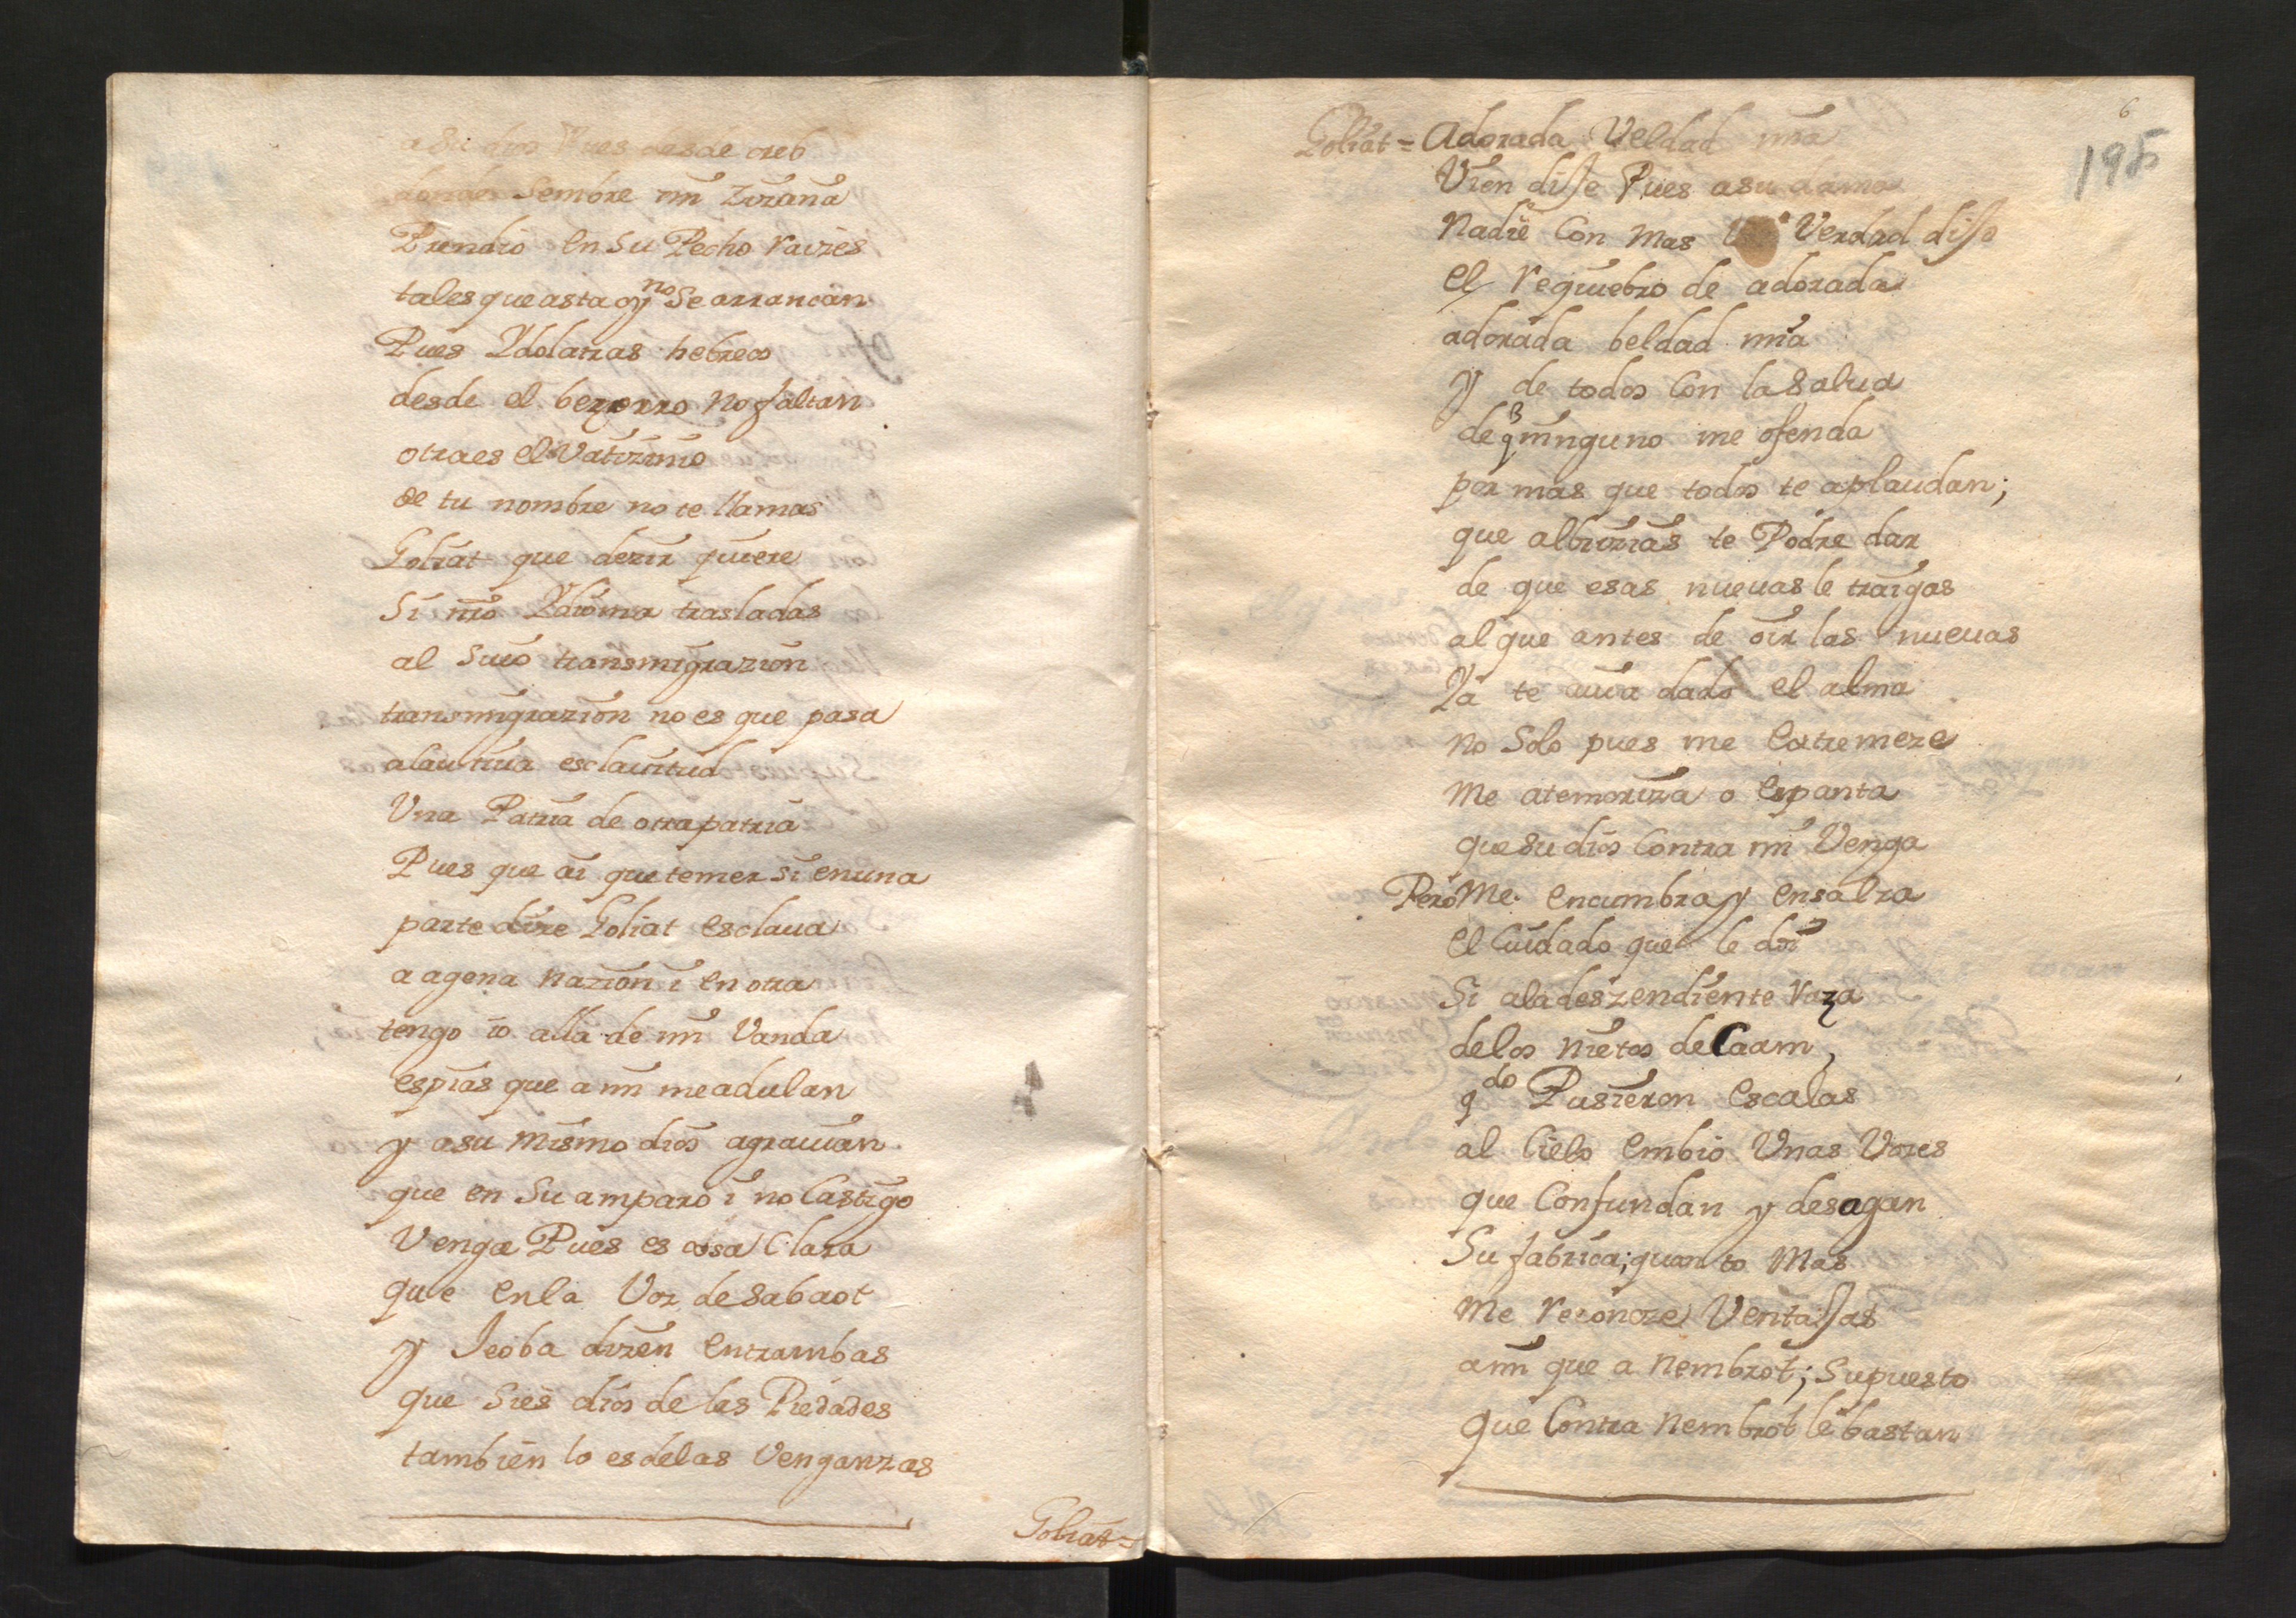 a su dios Pues desde oreb
donde Sembre mi Zizaña
Prendio en su Pecho raizes
tales que asta oy no Se arrancan
Pues Ydolatras hebreos
desde el bezerro no faltan
otra es el Vatizinio
de tu nombre no te llamas
Goliat que dezir quiere
Si nro Ydioma trasladas
al Suio transmigrazion
transmigrazion no es que pasa
a lautiua esclauitud
Vna Patria de otra patria
Pues que ai que temer si en una
parte dize Goliat esclaua
a agena nazion i en otra
tengo io alla de mi Vanda
espias que a mi me adulan
y asu mismo dios agrauian
que en Su amparo i no Castigo
Venga Pues es cosa Clara
que en la Voz de Sabaot
y Jeoba dizen entrambas
que Si es dios de las Piedades
tambien lo es delas Venganzas
Goliat=
6
195
Goliat= Adorada Veldad mia
Vien disse Pues asu dama
Nadie Con mas Verdad disso
el requiebro de adorada
adorada beldad mia
y de todos Con la Salua
de q ninguno me ofenda
por mas que todos te aplaudan;
que albrizias te Podre dar
de que esas nueuas le traigas
al que antes de oir las nueuas
Ya te auia dado el alma
no Solo pues me Extremeze
Me atemoriza o Espanta
que su dios Contra mi Venga
Pero Me encumbra y ensalza
el Cuidado que le doi
Si ala deszendiente raza
delos nietos de Caam,
qdo Pusieron escalas
al Cielo embio Vnas Vozes
que Confundan y desagan
Su fabrica; quanto Mas
Me reconoze Ventassas
a mi que a Nembrot; Supuesto
que Contra Nembrot le bastan